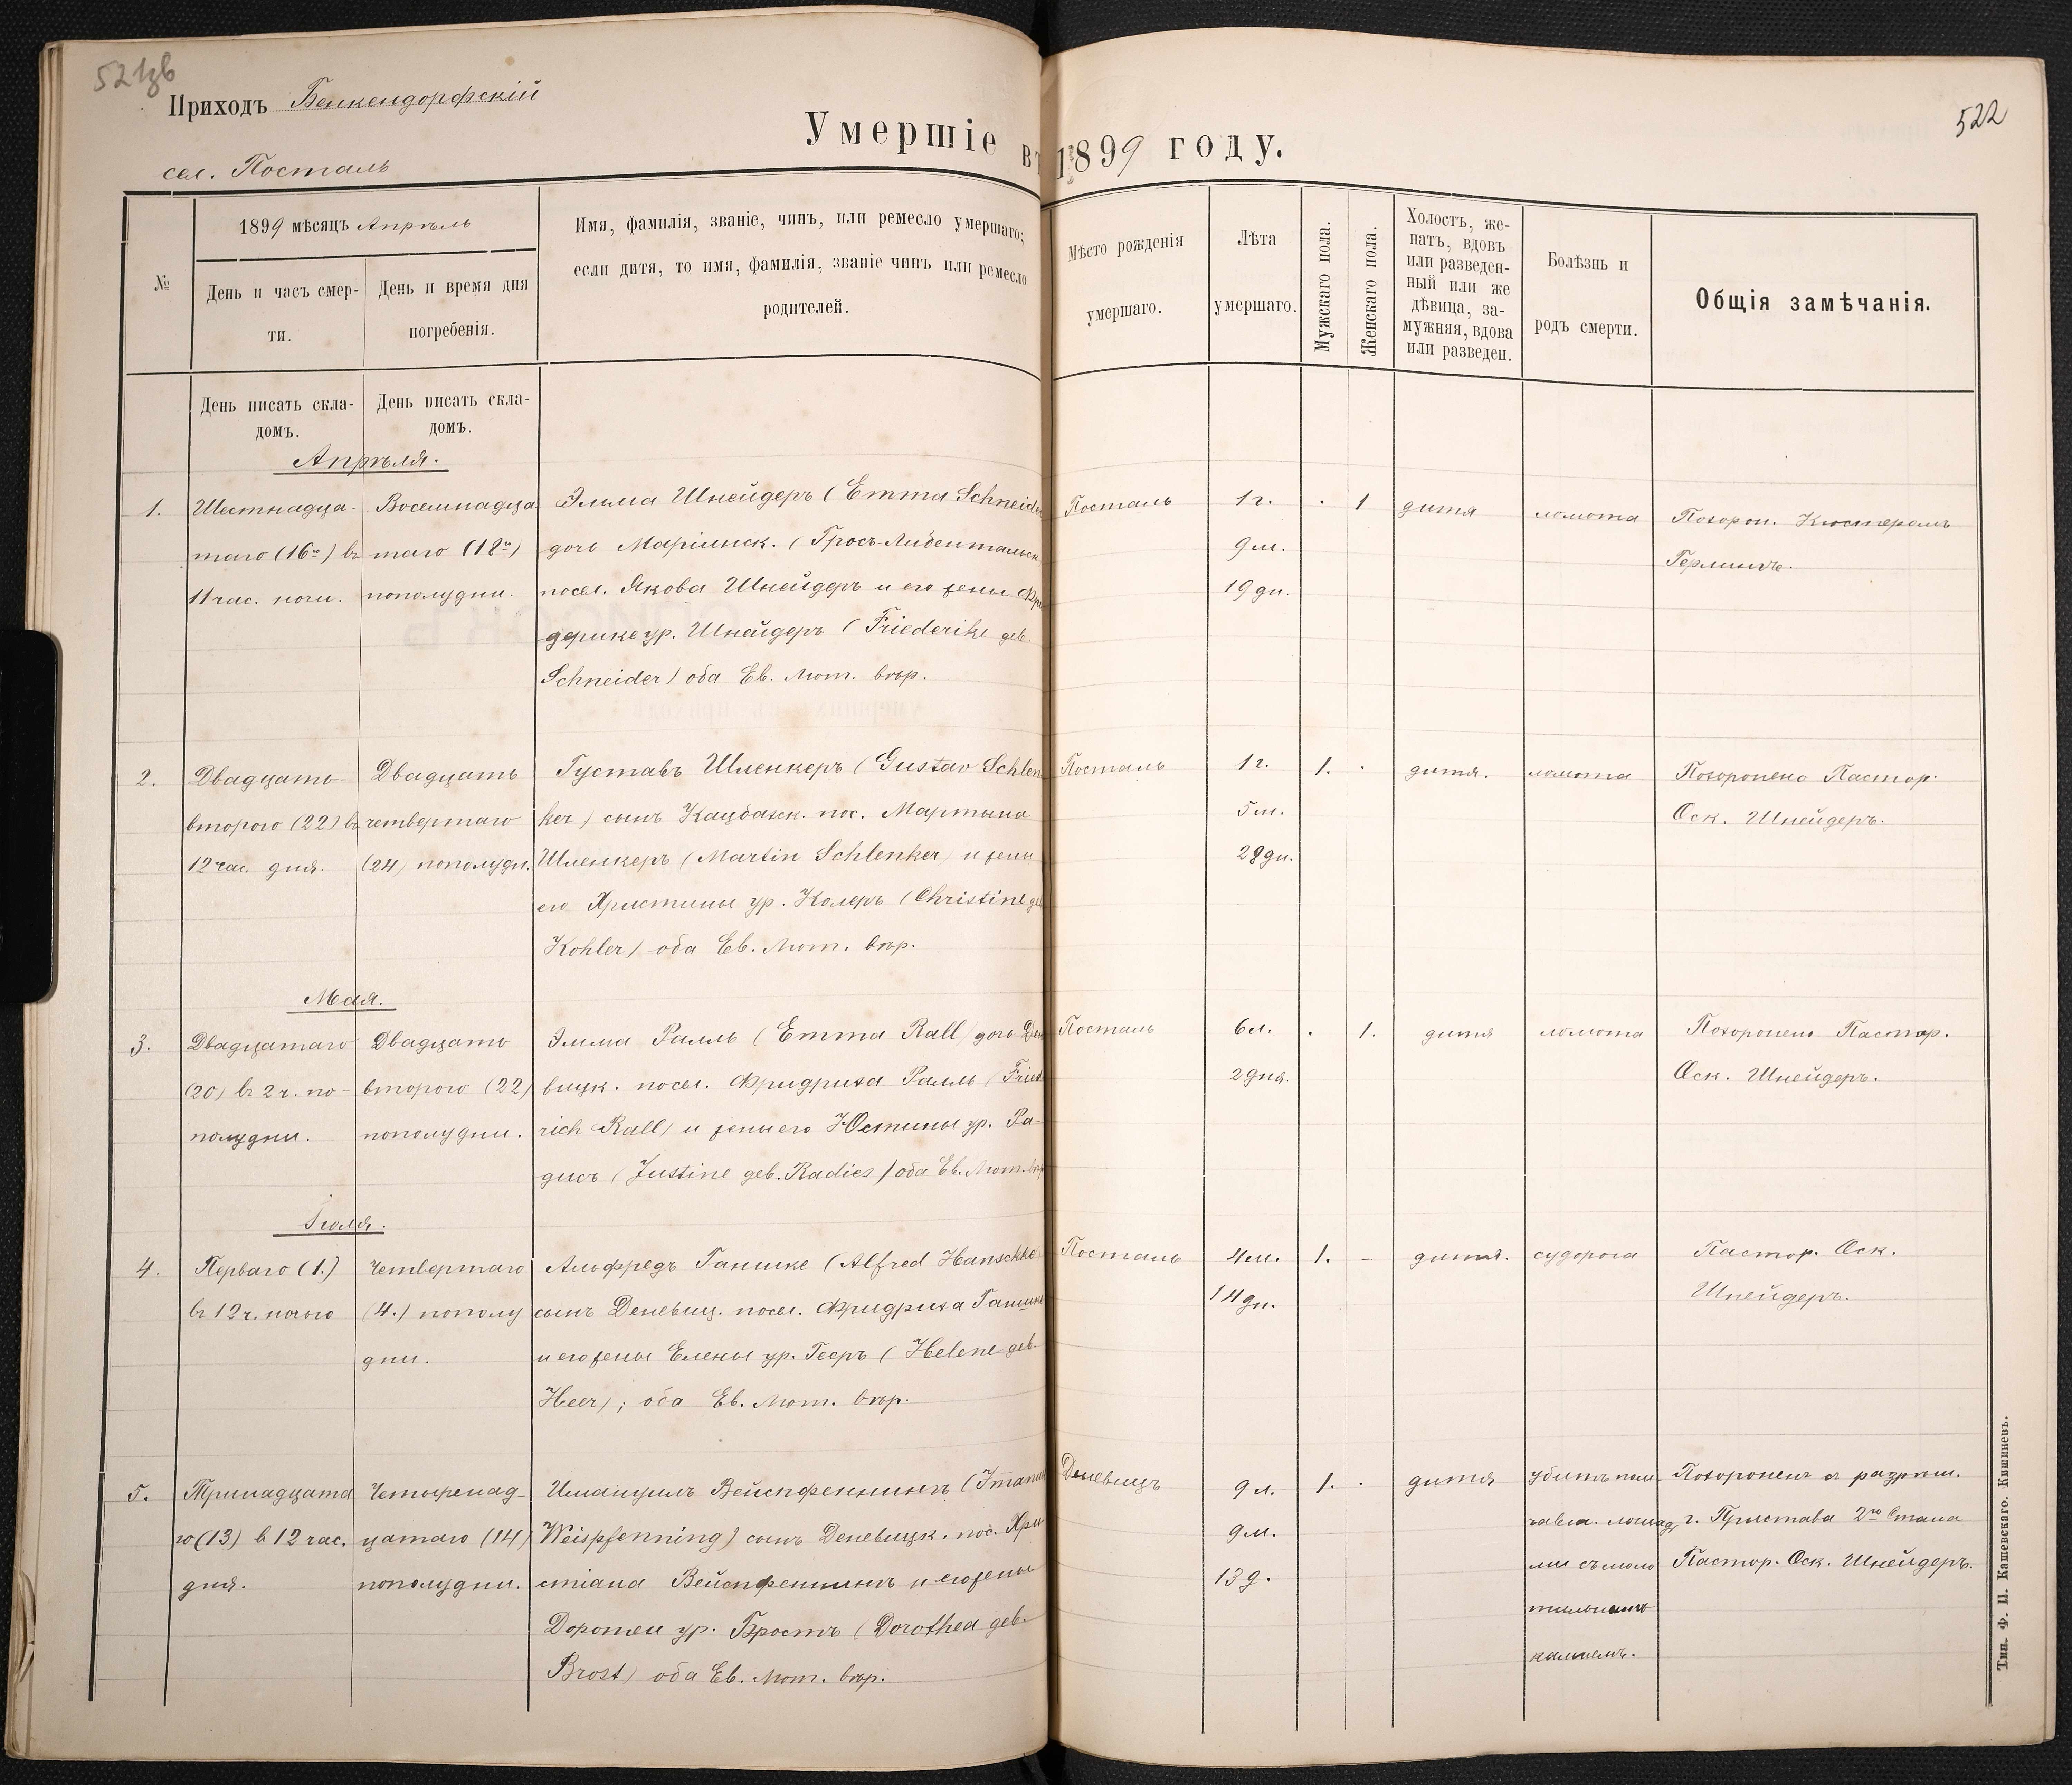 521зв
Приходъ Бенкендорфскій
522
Умершіе въ 1899 году.
сел. Посталь
№
1899 мѣсяцъ Апрѣль
День и часъ смер-
ти.
День и время дня
погребенія.
Имя, фамилія, званіе, чинъ, или ремесло умершаго;
если дитя, то имя, фамилія, званіе чинъ или ремесло
родителей.
Мѣсто рожденія
умершаго.
Лѣта
умершаго.
Мужскаго пола.
Женскаго пола.
Холостъ, же-
натъ, вдовъ
или разведен-
ный или же
дѣвица, за-
мужняя, вдова
или разведен.
Болѣзнь и
родъ смерти.
Общія замѣчанія.
День писать скла-
домъ.
День писать скла-
домъ.
Апрѣля.
1.
Шестнадца-
таго (16го) въ
11 час. ночи.
Восемнадца
таго (18го)
пополудни.
Эмма Шнейдеръ (Emma Schneider
дочь Маріинск. (Гросъ-Либентальск
посел. Якова Шнейдеръ и его жены Фри
дерике ур. Шнейдеръ (Friederike geb.
Schneider) оба Ев. Лют. вѣр.
Посталь
1 г.
9 м.
19 дн.
. 1
дитя
ломота
Похорон. Кюстеромъ
Герлингъ.
2.
Двадцать
второго (22) въ
12 час. дня.
Двадцать
четвертаго
(24) пополудн.
Густавъ Шленкеръ (Gustav Schlen
ker) сынъ Кацбахск. пос. Мартына
Шленкеръ (Martin Schlenker) и жены
его Христины ур. Колеръ (Christine ge
Kohler) оба Ев. Лют. вѣр.
Посталь
1 г.
5 м.
28 дн.
1. .
дитя.
ломота
Похоронено Пастор.
Оск. Шнейдеръ.
Мая.
3.
Двадцатаго
(20) въ 2 ч. по-
полудни.
Двадцать
второго (22)
пополудни.
Эмма Ралль (Emma Rall) дочь Ден
вицк. посел. Фридриха Ралль (Fried
rich Rall) и жены его Юстины ур. Ра-
дисъ (Justine geb. Radies) оба Ев. Лют. вѣр
Посталь
6 л.
2 дня.
. 1.
дитя
ломота
Похоронено Пастор.
Оск. Шнейдеръ.
Іюля.
4.
Перваго (1.)
въ 12 ч. ночью
Четвертаго
(4.) пополу
дни.
Альфредъ Ганшке (Alfred Hanschke)
сынъ Деневиц. посел. Фридриха Ганшке
и его жены Елены ур. Гееръ (Helene geb.
Heer); оба Ев. Лют. вѣр.
Посталь
4 м.
14 дн.
1. –
дитя.
судорога
Пастор. Оск.
Шнейдеръ.
5.
Тринадцата
го (13) в 12 час.
дня.
Четыренад-
цатаго (14)
пополудни.
Имануилъ Вейспфеннингъ (Imanuel
Weispfenning) сынъ Деневицк. пос. Хри
стіана Вейспфеннингъ и его жены
Доротеи ур. Бростъ (Dorothea geb.
Brost) оба Ев. Лют. вѣр.
Деневицъ
9 л.
9 м.
13 д.
1. .
дитя
убитъ
лошадь
ми съ моло
тильнымъ
камнемъ.
Похороненъ съ разрѣш.
г. Пристава 2го Стана
Пастор. Оск. Шнейдеръ.
Тип. Ф. П. Кашевскаго. Кишиневъ.